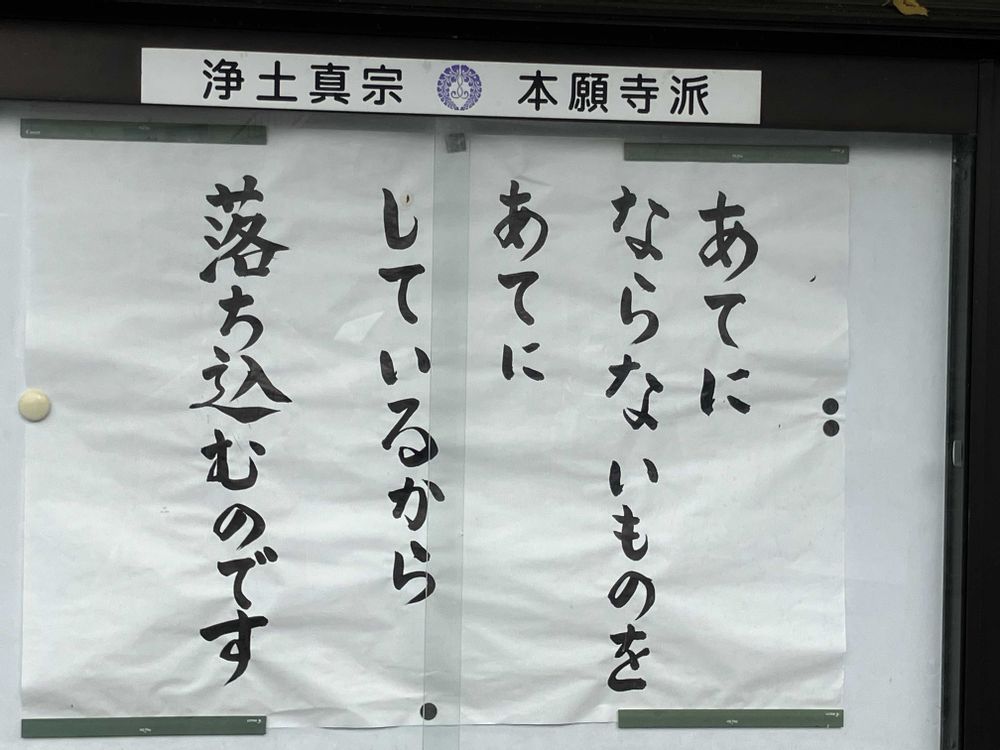 浄土真宗 本願寺派
あてに
ならないものを
あてに
しているから
落ち込むのです